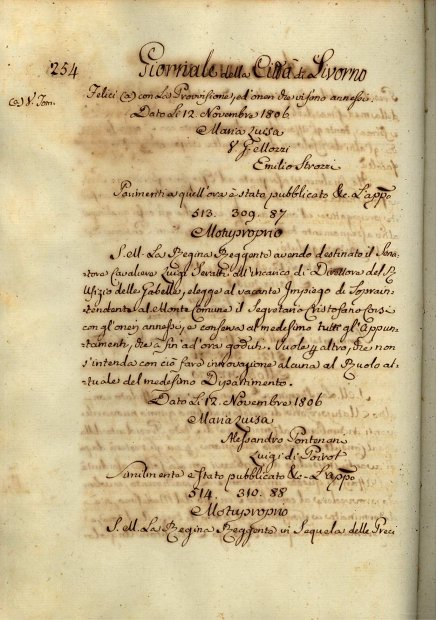 254 Giornale della Città di Livorno
(a) V. Tom.
Felici (a) con La Provvisione, ed oneri che vi sono annessi.
Dato Li 12. Novembre 1806
Maria Luisa
V. G.
Emilio Strozzi
Parimenti a quell'ora è stato pubblicato &c. L'app.to
513. 309. 87
Motuproprio
S. M. La Regina Reggente avendo destinato il Sena
tore Cavaliere Luigi Serratti all'incarico di Direttore del R.
Ufizio delle Gabelle, elegge al vacante Impiego di Soprain
tendente al Monte Comune il Segretario Cristofano Corsi
con gl'oneri annessi, e conserva al medesimo tutti gl'Appun
tamenti, che a fin ad ora goduti. Vuole altro, che non
s'intenda con ciò fare innovazione alcuna al Ruolo at
tuale del medesimo Dipartimento.
Dato Li 12. Novembre 1806
Maria Luisa
Alessandro Pontenani
Luigi di Poirot
Similmente è stato pubblicato &c. L'app.to
514. 310. 88
Motuproprio
S. M. La Regina Reggente in Sequela delle Preci